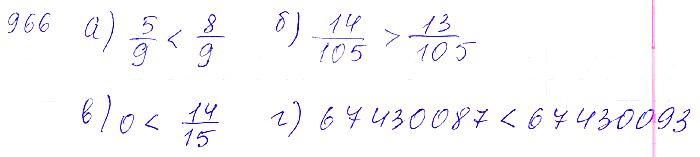 966 а) 5/9 < 8/9 б) 14/105 > 13/105
в) 0 < 14/15 г) 67430087 < 67430093